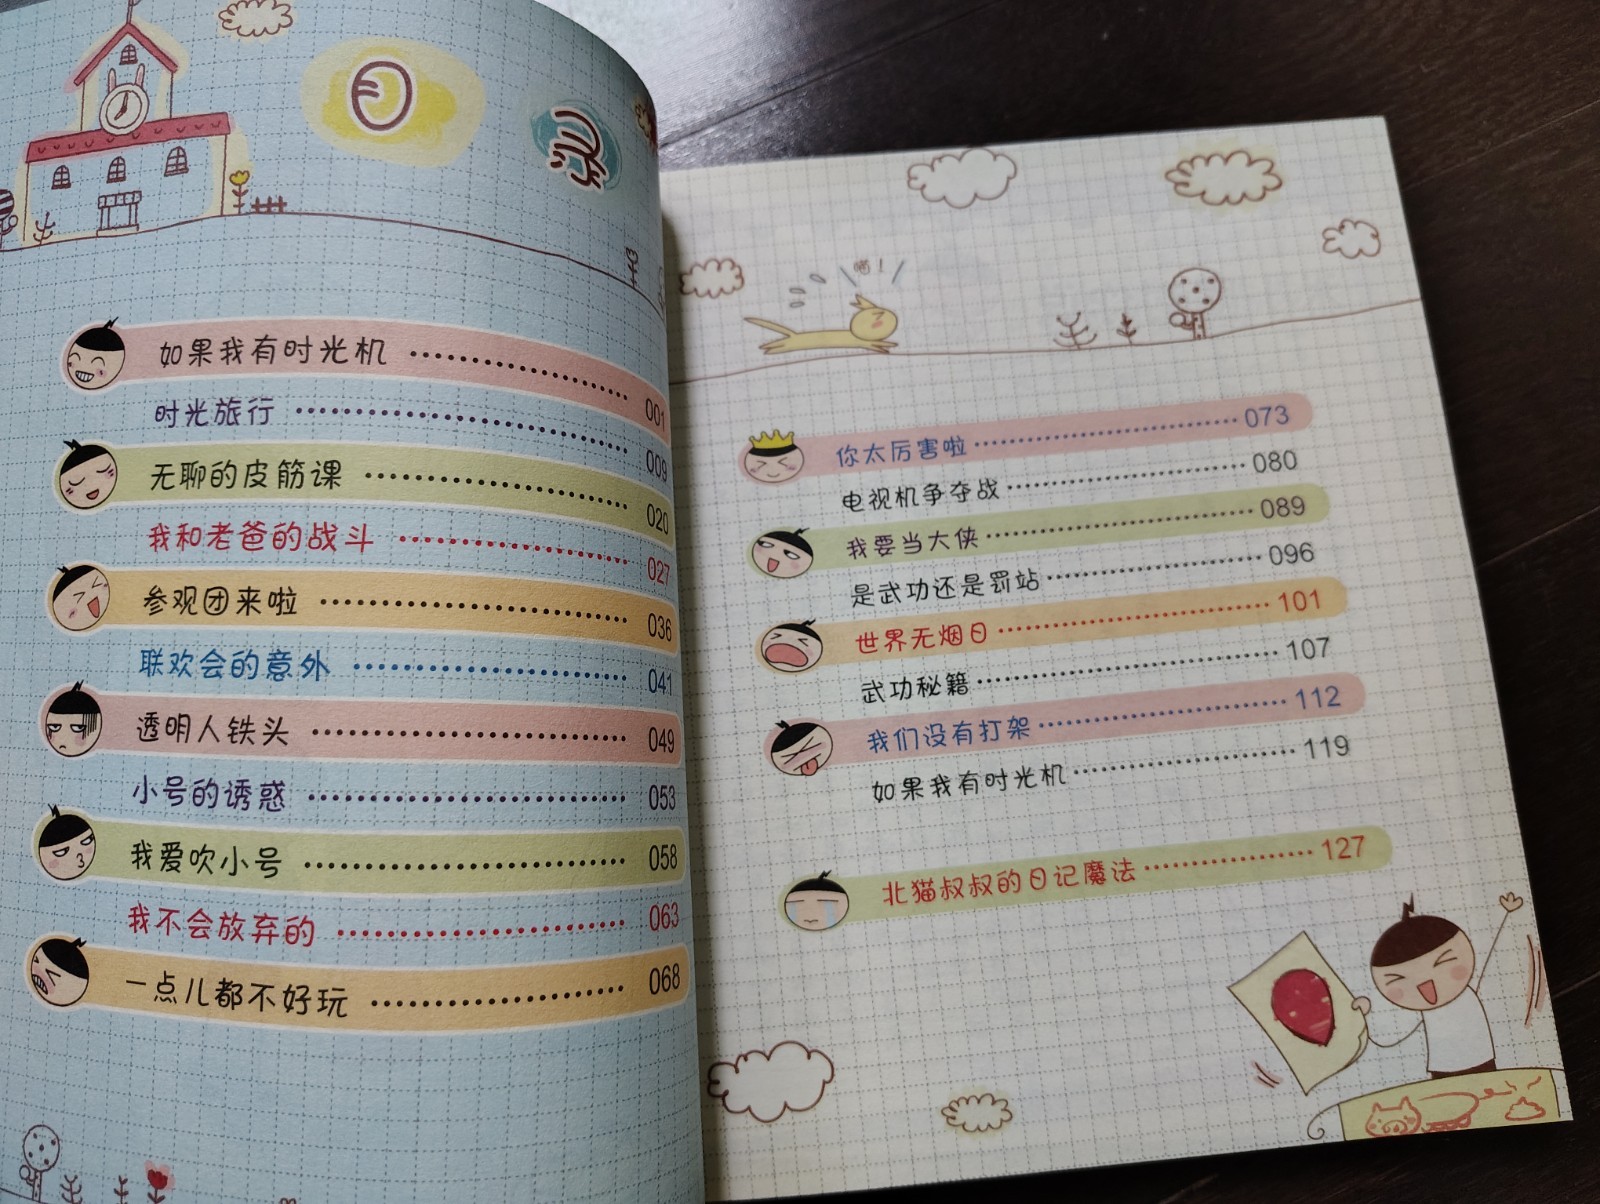 目录
如果我有时光机 001
时光旅行 009
无聊的皮筋课 020
我和老爸的战斗 027
参观团来啦 036
联欢会的意外 041
透明人铁头 049
小号的诱惑 053
我爱吹小号 058
我不会放弃的 063
一点儿都不好玩 068
喵！
你太厉害啦 073
电视机争夺战 080
我要当大侠 089
是武功还是罚站 096
世界无烟日 101
武功秘籍 107
我们没有打架 112
如果我有时光机 119
北猫叔叔的日记魔法 127